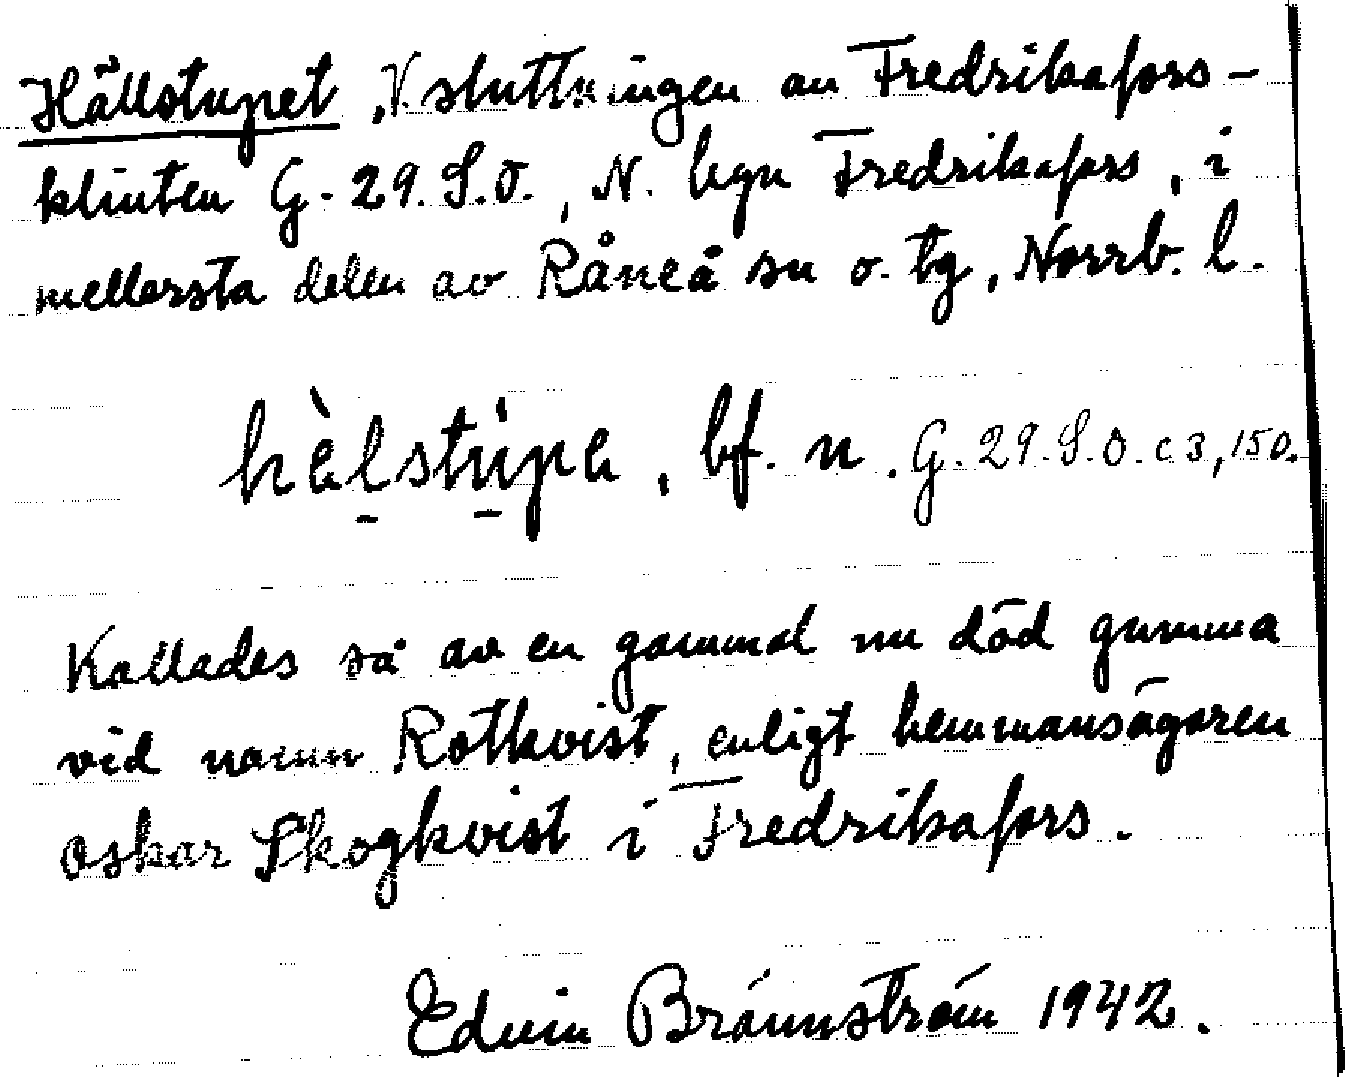 Hällstupet, V. sluttningen av Fredrikafors-
klinten G. 29. S.O., N. byn Fredrikafors, i
mellersta delen av Råneå sn o. tg, Norrb. l.
hèl̠stu̠̇pe, bf. n. G. 29. S.O. c 3, 150.
Kallades så av en gammal nu död gumma
vid namn Rotkvist, enligt hemmansägaren
Oskar Skogkvist i Fredrikafors.
Edvin Brännström 1942.